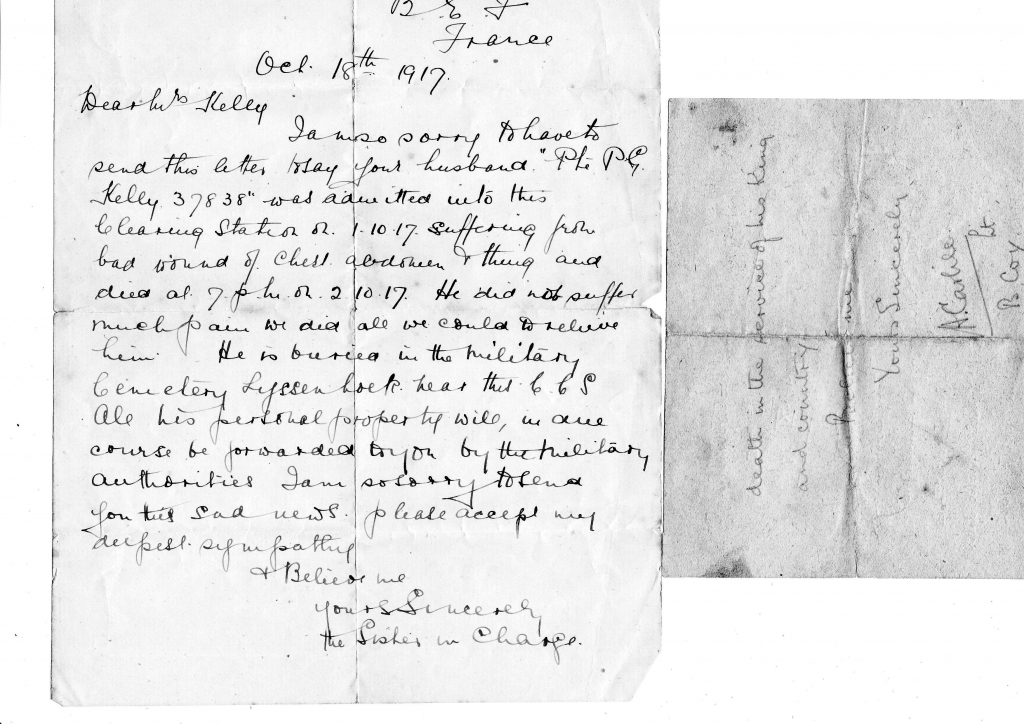 B E F
France
Oct. 18th 1917.
Dear Mrs Kelly
I am so sorry to have to
send this letter to say your husband "Pte P.G.
Kelly 37838" was admitted into this
Clearing Station on 1.10.17. suffering from
bad wound of Chest abdomen & thing and
died at 7. p.m. on 2.10.17. He did not suffer
much pain we did all we could to relieve
him. He is buried in the Military
Cemetery Lyssenhoek near this C C S
All his personal property will, in due
course be forwarded to you by the Military
authorities I am so sorry to send
you this sad news. please accept my
deepest sympathy
& Believe me
yours Sincerely
the Sister in Charge.
death in the service of his King
and country
me
Yours Sincerely
A. Carlile
Lt.
B Coy.